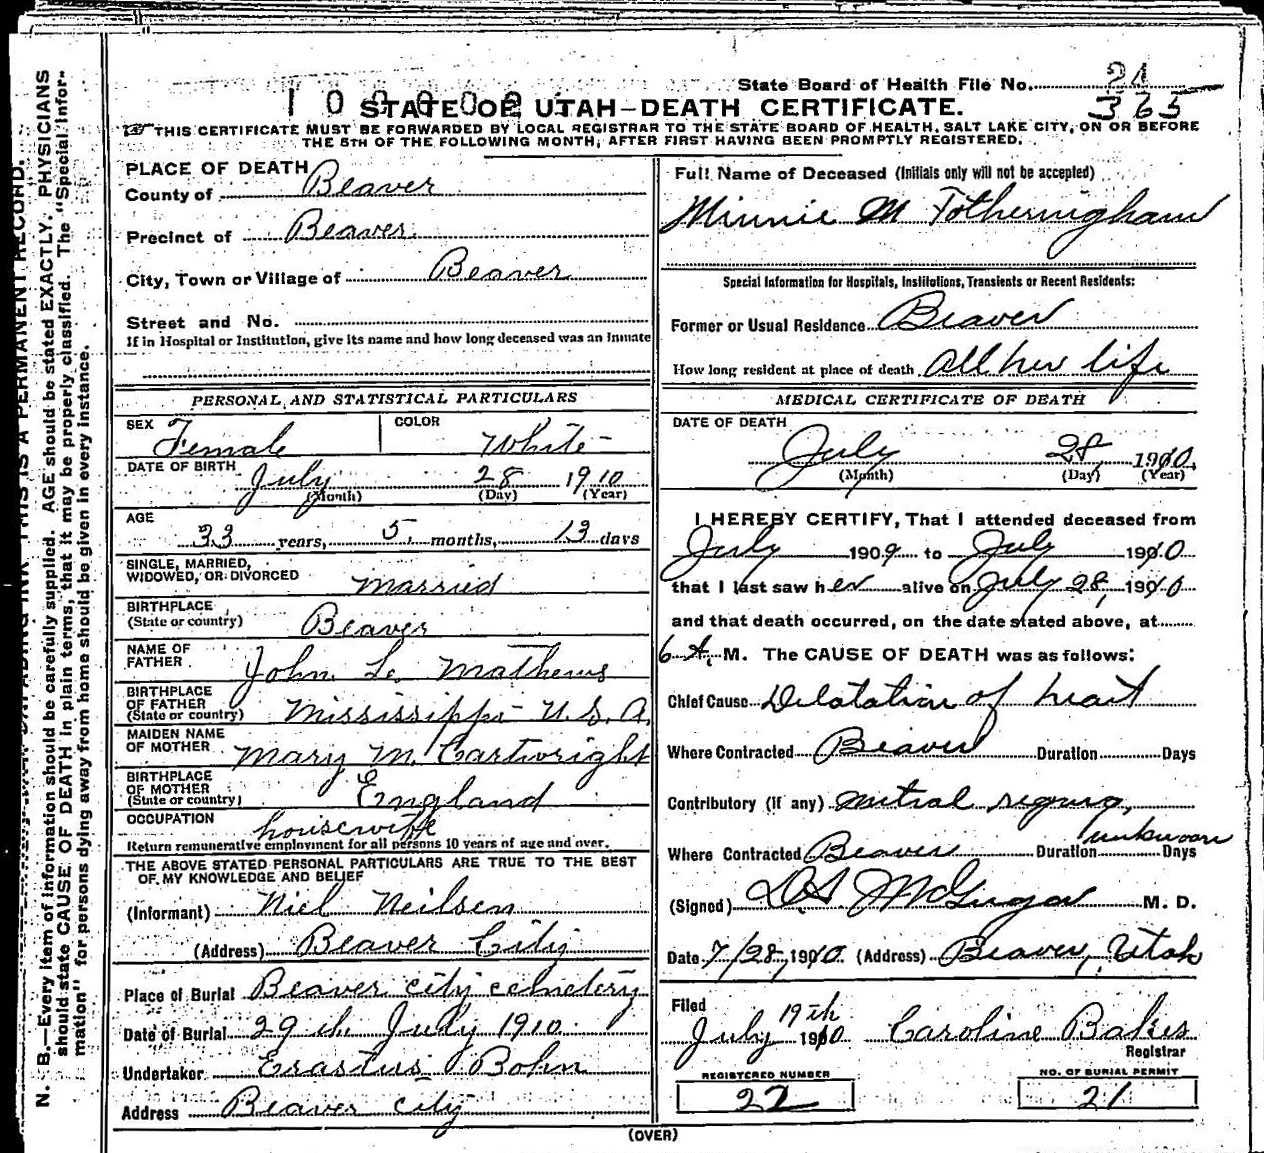 State Board of Health File No. 24
365
STATE OF UTAH—DEATH CERTIFICATE.
THIS CERTIFICATE MUST BE FORWARDED BY LOCAL REGISTRAR TO THE STATE BOARD OF HEALTH, SALT LAKE CITY, ON OR BEFORE
THE 5TH OF THE FOLLOWING MONTH, AFTER FIRST HAVING BEEN PROMPTLY REGISTERED.
N. B.—Every item of information should be carefully supplied. AGE should be stated EXACTLY. PHYSICIANS
should state CAUSE OF DEATH in plain terms, that it may be properly classified. The "Special Infor-
mation" for persons dying away from home should be given in every instance.
THIS IS A PERMANENT RECORD.
PLACE OF DEATH
County of Beaver
Precinct of Beaver
City, Town or Village of Beaver
Street and No.
If in Hospital or Institution, give its name and how long deceased was an inmate
PERSONAL AND STATISTICAL PARTICULARS
SEX Female COLOR White
DATE OF BIRTH July 28 1910
(Month) (Day) (Year)
AGE 33 years, 5 months, 13 days
SINGLE, MARRIED,
WIDOWED, OR DIVORCED Married
BIRTHPLACE
(State or country) Beaver
NAME OF
FATHER John L. Mathews
BIRTHPLACE
OF FATHER
(State or country) Mississippi U.S.A.
MAIDEN NAME
OF MOTHER Mary M. Cartwright
BIRTHPLACE
OF MOTHER
(State or country) England
OCCUPATION housewife
Return remunerative employment for all persons 10 years of age and over.
THE ABOVE STATED PERSONAL PARTICULARS ARE TRUE TO THE BEST
OF MY KNOWLEDGE AND BELIEF
(Informant) Niel Neilsen
(Address) Beaver City
Place of Burial Beaver city cemetery
Date of Burial 29th July 1910
Undertaker Erastus Bohn
Address Beaver City
Full Name of Deceased (Initials only will not be accepted)
Minnie M Fotheringham
Special Information for Hospitals, Institutions, Transients or Recent Residents:
Former or Usual Residence Beaver
How long resident at place of death all her life
MEDICAL CERTIFICATE OF DEATH
DATE OF DEATH
July 28, 1910
(Month) (Day) (Year)
I HEREBY CERTIFY, That I attended deceased from
July 1909 to July 1910
that I last saw her alive on July 28, 1910
and that death occurred, on the date stated above, at
6 A. M. The CAUSE OF DEATH was as follows:
Chief Cause Dilatation of heart
Where Contracted Beaver Duration Days
Contributory (if any) mitral regurg,
Where Contracted Beaver Duration unknown Days
(Signed) McGregor M. D.
Date 7/28, 1910 (Address) Beaver, Utah
Filed
July 19th 1910 Caroline Bakes
Registrar
REGISTERED NUMBER
22
NO. OF BURIAL PERMIT
21
(OVER)